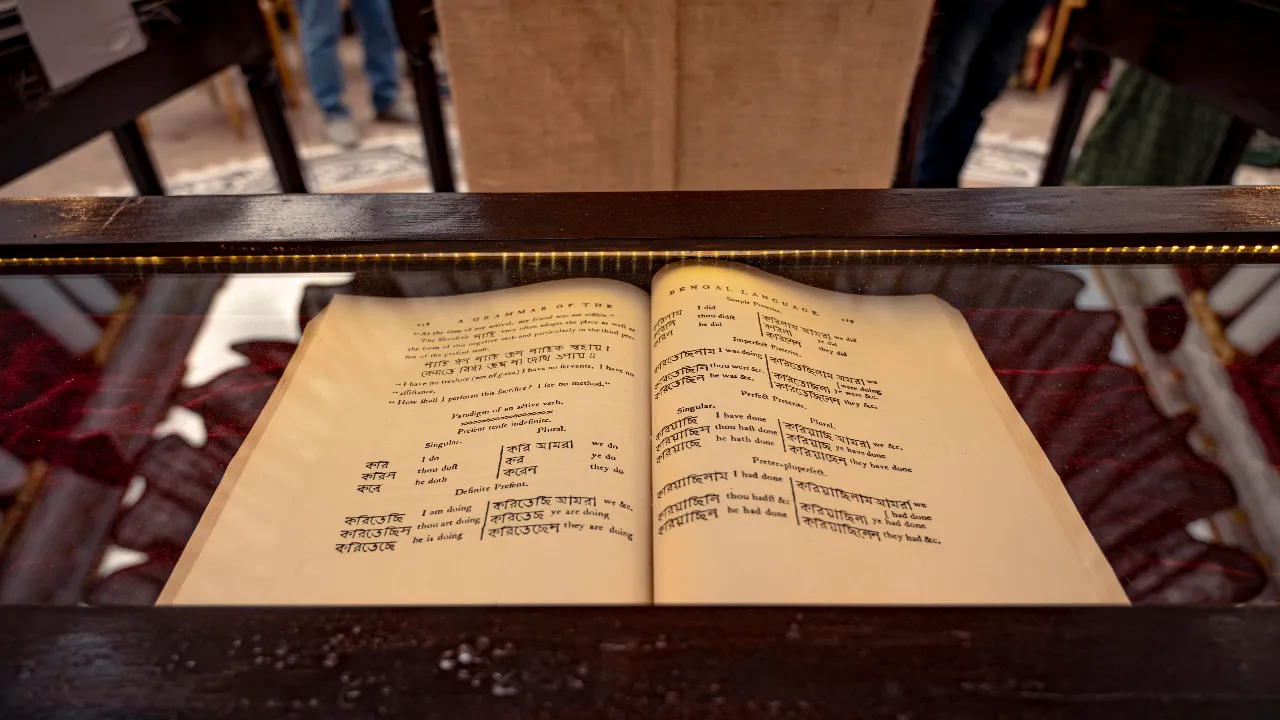 128 A GRAMMAR OF THE
"At the time of my arrival, my friend was not visible."
The Shanscrit নাস্তি very often adopts the place as well as
the form of this negative verb and particularly in the third per-
son of the present tense.
"I have no treasure (nor of gaza) I have no servants, I have no
"assistance.
"How shall I perform this sacrifice? I see no method."
Paradigm of an active verb.
Present tense indefinite.
Singular. Plural.
করি I do করি আমরা we do
করিস thou dost কর ye do
করে he doth করেন they do
Definite Present.
করিতেছি I am doing করিতেছি আমরা we &c.
করিতেছিস thou art doing করিতেছ ye are doing
করিতেছে he is doing করিতেছেন they are doing
BENGAL LANGUAGE. 129
Simple Preterite.
করিলাম I did করিলাম আমরা we did
করিলি thou didst করিলা ye did
করিল he did করিলেন they did
Imperfect Preterite.
করিতেছিলাম I was doing করিতেছিলাম আমরা we
করিতেছিলি thou wert &c. were doing
করিতেছিল he was &c. করিতেছিলা ye were &c.
করিতেছিলেন they &c.
Perfect Preterite.
Singular. Plural.
করিয়াছি I have done করিয়াছি আমরা we &c.
করিয়াছিস thou hast done করিয়াছ ye have done
করিয়াছে he hath done করিয়াছেন they have done
Preter-pluperfect.
করিয়াছিলাম I had done করিয়াছিলাম আমরা we
had done
করিয়াছিলি thou hadst &c করিয়াছিলা ye had done
করিয়াছিল he had done করিয়াছিলেন they had &c.